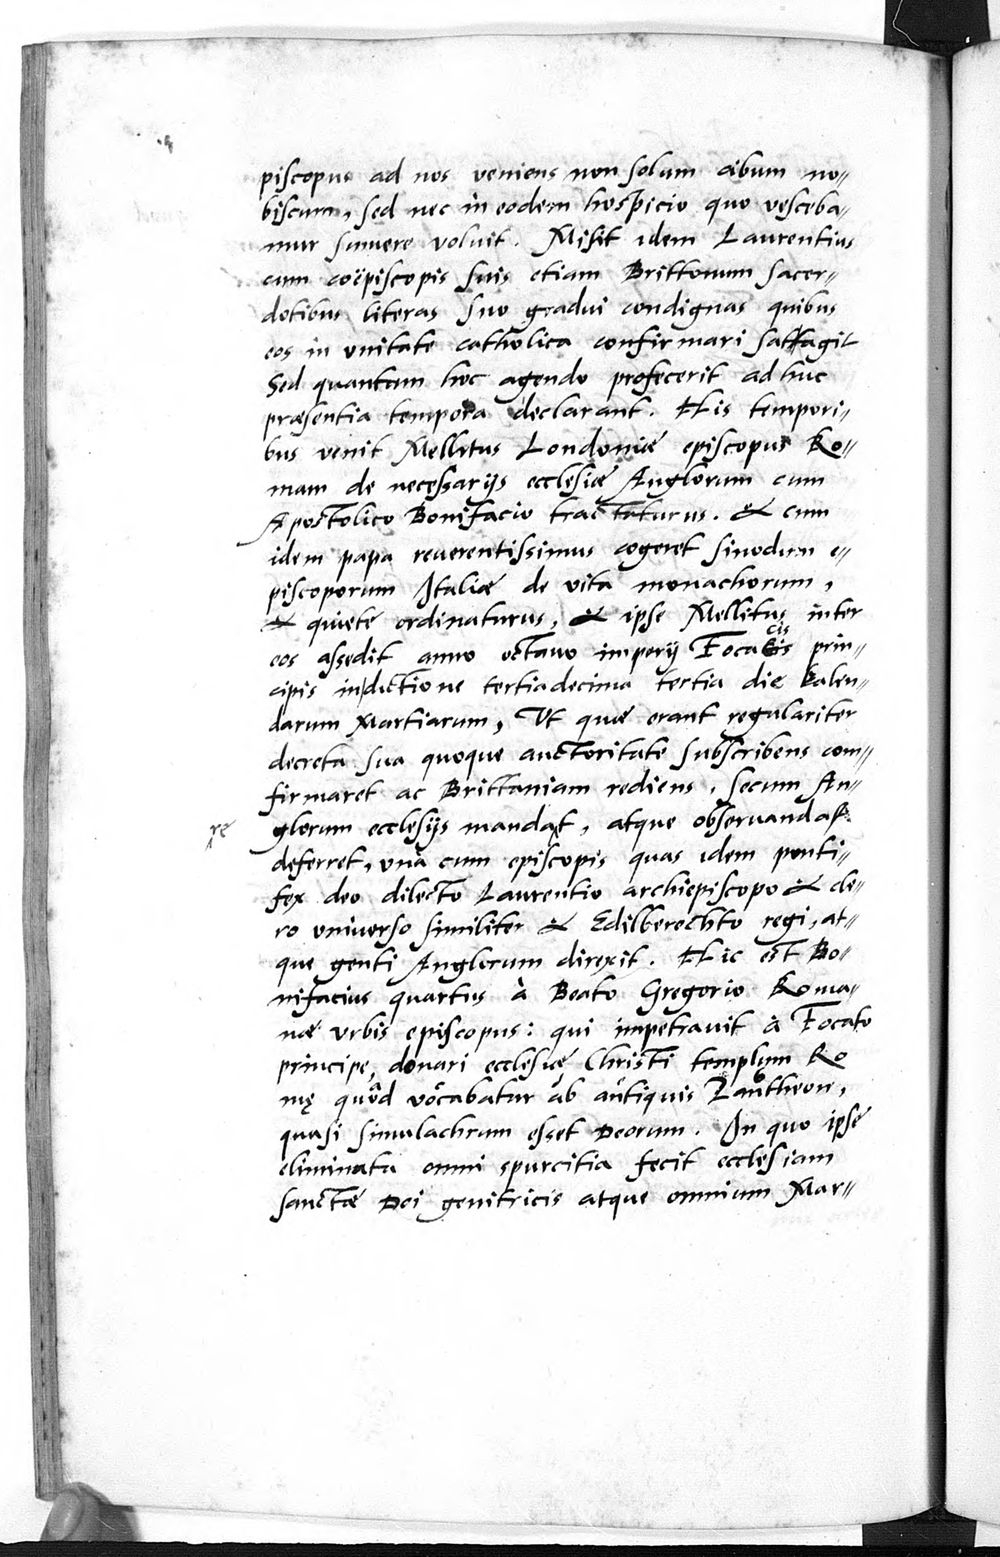 piscopus ad nos veniens non solum cibum no„
biscum, sed nec in eodem hospicio quo vesceba„
mur sumere voluit. Misit idem Laurentius
cum coëpiscopis suis etiam Brittonum sacer„
dotibus literas suo gradui condignas quibus
eos in vnitate catholica confirmari satagit
Sed quantum hoc agendo profecerit ad huc
præsentia tempora declarant. His tempori„
bus venit Mellitus Londoniæ episcopus Ro„
mam de necessarijs ecclesiæ Anglorum cum
Apostolico Bonifacio tractaturus. & cum
idem papa reuerentissimus cogeret sinodum e„
piscoporum Italiæ de vita monachorum,
& quiete ordinaturus, & ipse Mellitus inter
eos assedit anno octauo imperij Focatis prin„
cis
cipis indictione tertiadecima tertia die kalen„
darum Martiarum, Vt quæ erant regulariter
decreta sua quoque auctoritate subscribens com„
firmaret ac Brittaniam rediens, secum An„
re glorum ecclesijs mandat, atque obseruandas
deferret, vnà cum episcopis quas idem ponti„
fex deo dilecto Laurentio archiepiscopo & cle„
ro vniuerso similiter & Edilberechto regi, at„
que genti Anglorum direxit. Hic est Bo„
nifacius quartus à Beato Gregorio Roma„
næ vrbis episcopus: qui impetrauit à Focato
principe, donari ecclesiæ Christi templum Ro
mę quôd vôcabatur ab antiquis Pantheon,
quasi simulachrum esset Deorum. In quo ipse
eliminata omni spurcitia fecit ecclesiam
sanctæ Dei genitricis atque omnium Mar„